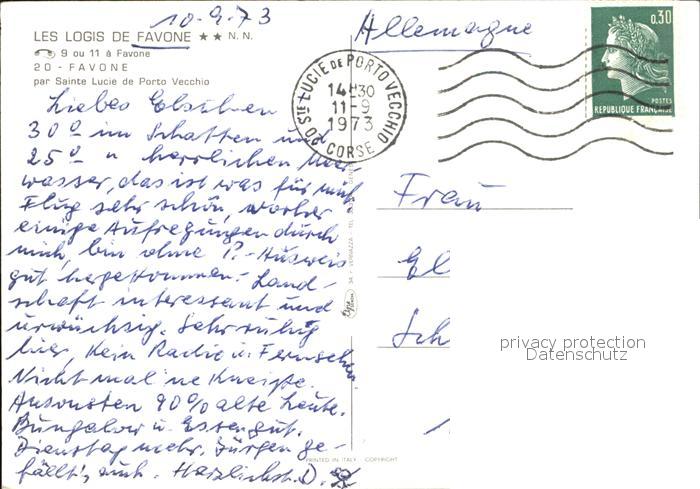 10-9-73
LES LOGIS DE FAVONE ★★ N.N.
9 ou 11 à Favone
20 - FAVONE
par Sainte Lucie de Porto Vecchio
Liebes Elsulein
30° im Schatten und
25° n herrlichen Meer
wasser, das ist was für mich
Flug sehr schön, vorher
einige Aufregungen durch
mich, bin ohne P.-Ausweis
gut hergekommen. Land-
schaft interessant und
urwüchsig. Sehr ruhig
hier, kein Radio u. Fernsehen
Nicht mal 'ne Kneipe.
Ansonsten 90% alte Leute.
Bungalow u. Essen gut.
Dienstag mehr. Jürgen ge-
fällt's auch. Herzlichst. D.
Allemagne
STE LUCIE DE PORTO VECCHIO
14H30
11-9
1973
20 CORSE
0,30
POSTES
REPUBLIQUE FRANÇAISE
Frau
El
Sch
privacy protection
Datenschutz
PRINTED IN ITALY - COPYRIGHT